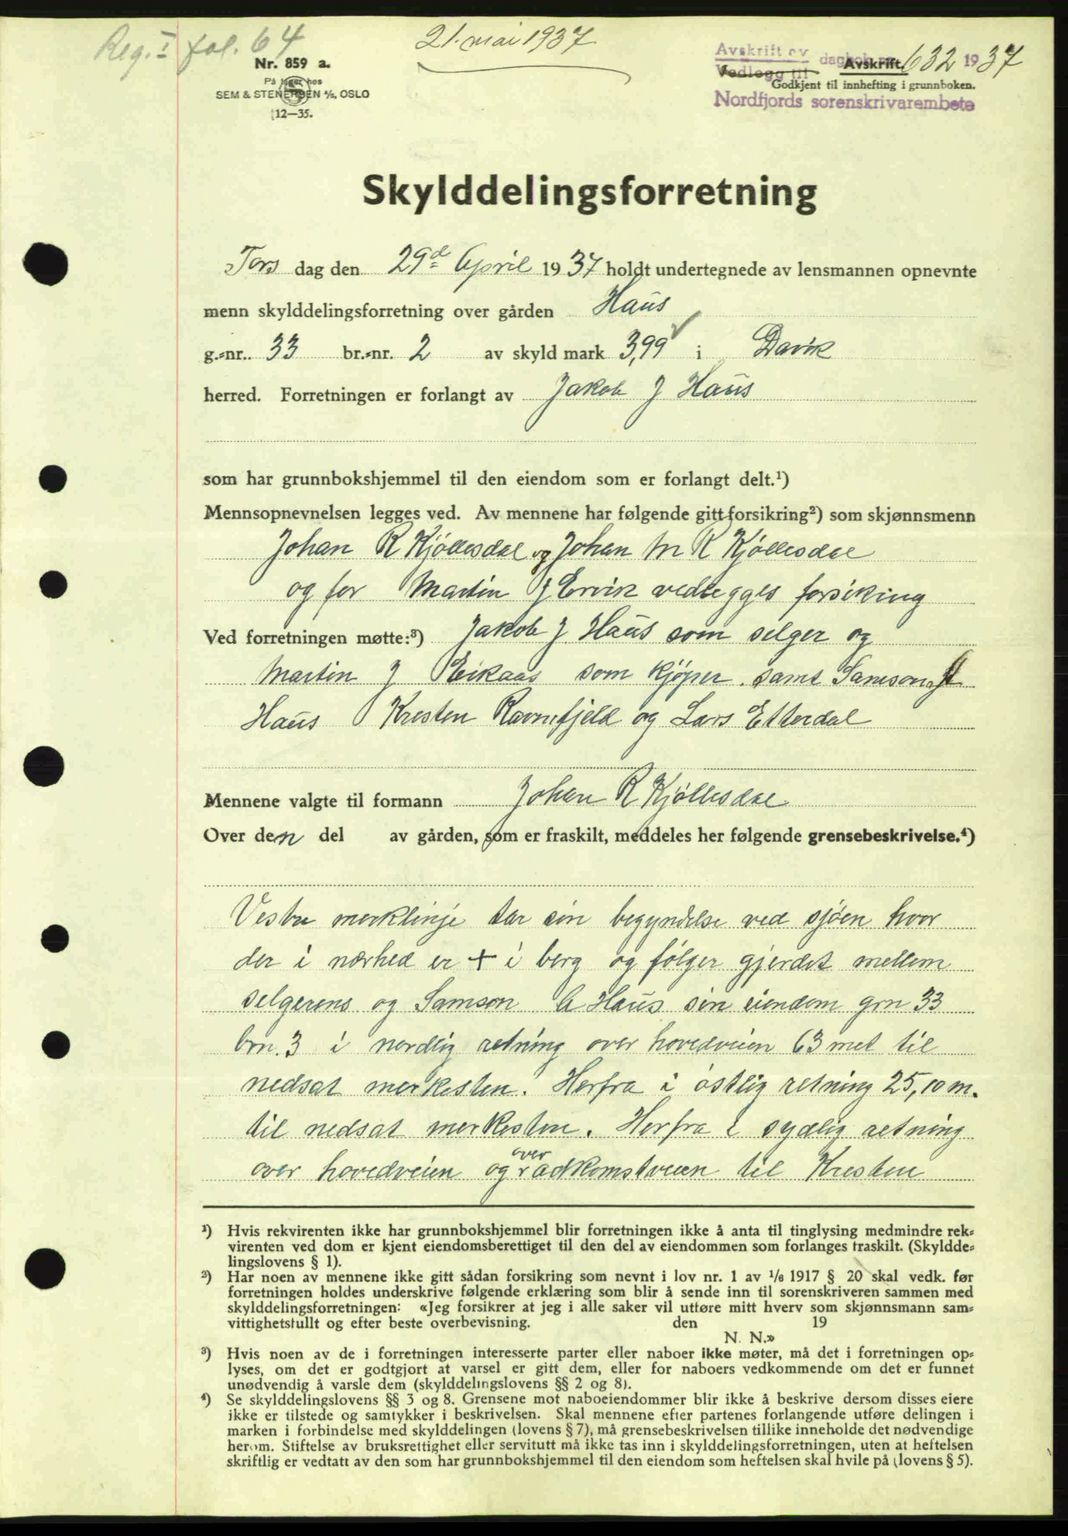 Reg. I fol. 64
21. mai 1937
Nr. 859 a.
På lager hos
SEM & STENERSEN A/S, OSLO
12—35.
Avskrift av dagbok nr. 632 1937
Vedlegg til Avskrift.
Godkjent til innhefting i grunnboken.
Nordfjords sorenskrivarembete
Skylddelingsforretning
Tors dag den 29d April 1937 holdt undertegnede av lensmannen opnevnte
menn skylddelingsforretning over gården Haus
g.-nr. 33 br.-nr. 2 av skyld mark 3,99 i Davik
herred. Forretningen er forlangt av Jakob J Haus
som har grunnbokshjemmel til den eiendom som er forlangt delt.¹)
Mennsopnevnelsen legges ved. Av mennene har følgende gitt forsikring²) som skjønnsmenn
Johan R Kjöllesdal og Johan M R Kjöllesdal
og for Martin J Ervik vedlegges forsikring
Ved forretningen møtte:³) Jakob J. Haus som selger og
Martin J Eikaas som kjöper samt Samson A
Haus Kresten Ravnefjeld og Lars Etterdal
Mennene valgte til formann Johan R Kjöllesdal
Over den del av gården, som er fraskilt, meddeles her følgende grensebeskrivelse.⁴)
Vestre merklinje tar sin begyndelse ved sjöen hvor
der i nærhed er + i berg og fölger gjerdet mellem
selgerens og Samson A Haus sin eiendom grn 33
brn. 3 i nordlig retning over hovedveien 63 met til
nedsat merkesten. Herfra i östlig retning 25,10 m.
til nedsat merkesten. Herfra i sydlig retning
over hovedveien og over adkomstveien til Kresten
¹) Hvis rekvirenten ikke har grunnbokshjemmel blir forretningen ikke å anta til tinglysing medmindre rek-
virenten ved dom er kjent eiendomsberettiget til den del av eiendommen som forlanges fraskilt. (Skyldde-
lingslovens § 1).
²) Har noen av mennene ikke gitt sådan forsikring som nevnt i lov nr. 1 av 1/6 1917 § 20 skal vedk. før
forretningen holdes underskrive følgende erklæring som blir å sende inn til sorenskriveren sammen med
skylddelingsforretningen: «Jeg forsikrer at jeg i alle saker vil utføre mitt hverv som skjønnsmann sam-
vittighetsfullt og efter beste overbevisning. den 19
N. N.»
³) Hvis noen av de i forretningen interesserte parter eller naboer ikke møter, må det i forretningen op-
lyses, om det er godtgjort at varsel er gitt dem, eller for naboers vedkommende om det er funnet
unødvendig å varsle dem (skylddelingslovens §§ 2 og 8).
⁴) Se skylddelingslovens §§ 3 og 8. Grensene mot naboeiendommer blir ikke å beskrive dersom disses eiere
ikke er tilstede og samtykker i beskrivelsen. Skal mennene efter partenes forlangende utføre delingen i
marken i forbindelse med skylddelingen (lovens § 7), må grensebeskrivelsen tillike inneholde det nødvendige
herom. Stiftelse av bruksrettighet eller servitutt må ikke tas inn i skylddelingsforretningen, uten at heftelsen
skriftlig er vedtatt av den som har grunnbokshjemmel til den eiendom som heftelsen skal hvile på (lovens § 5).